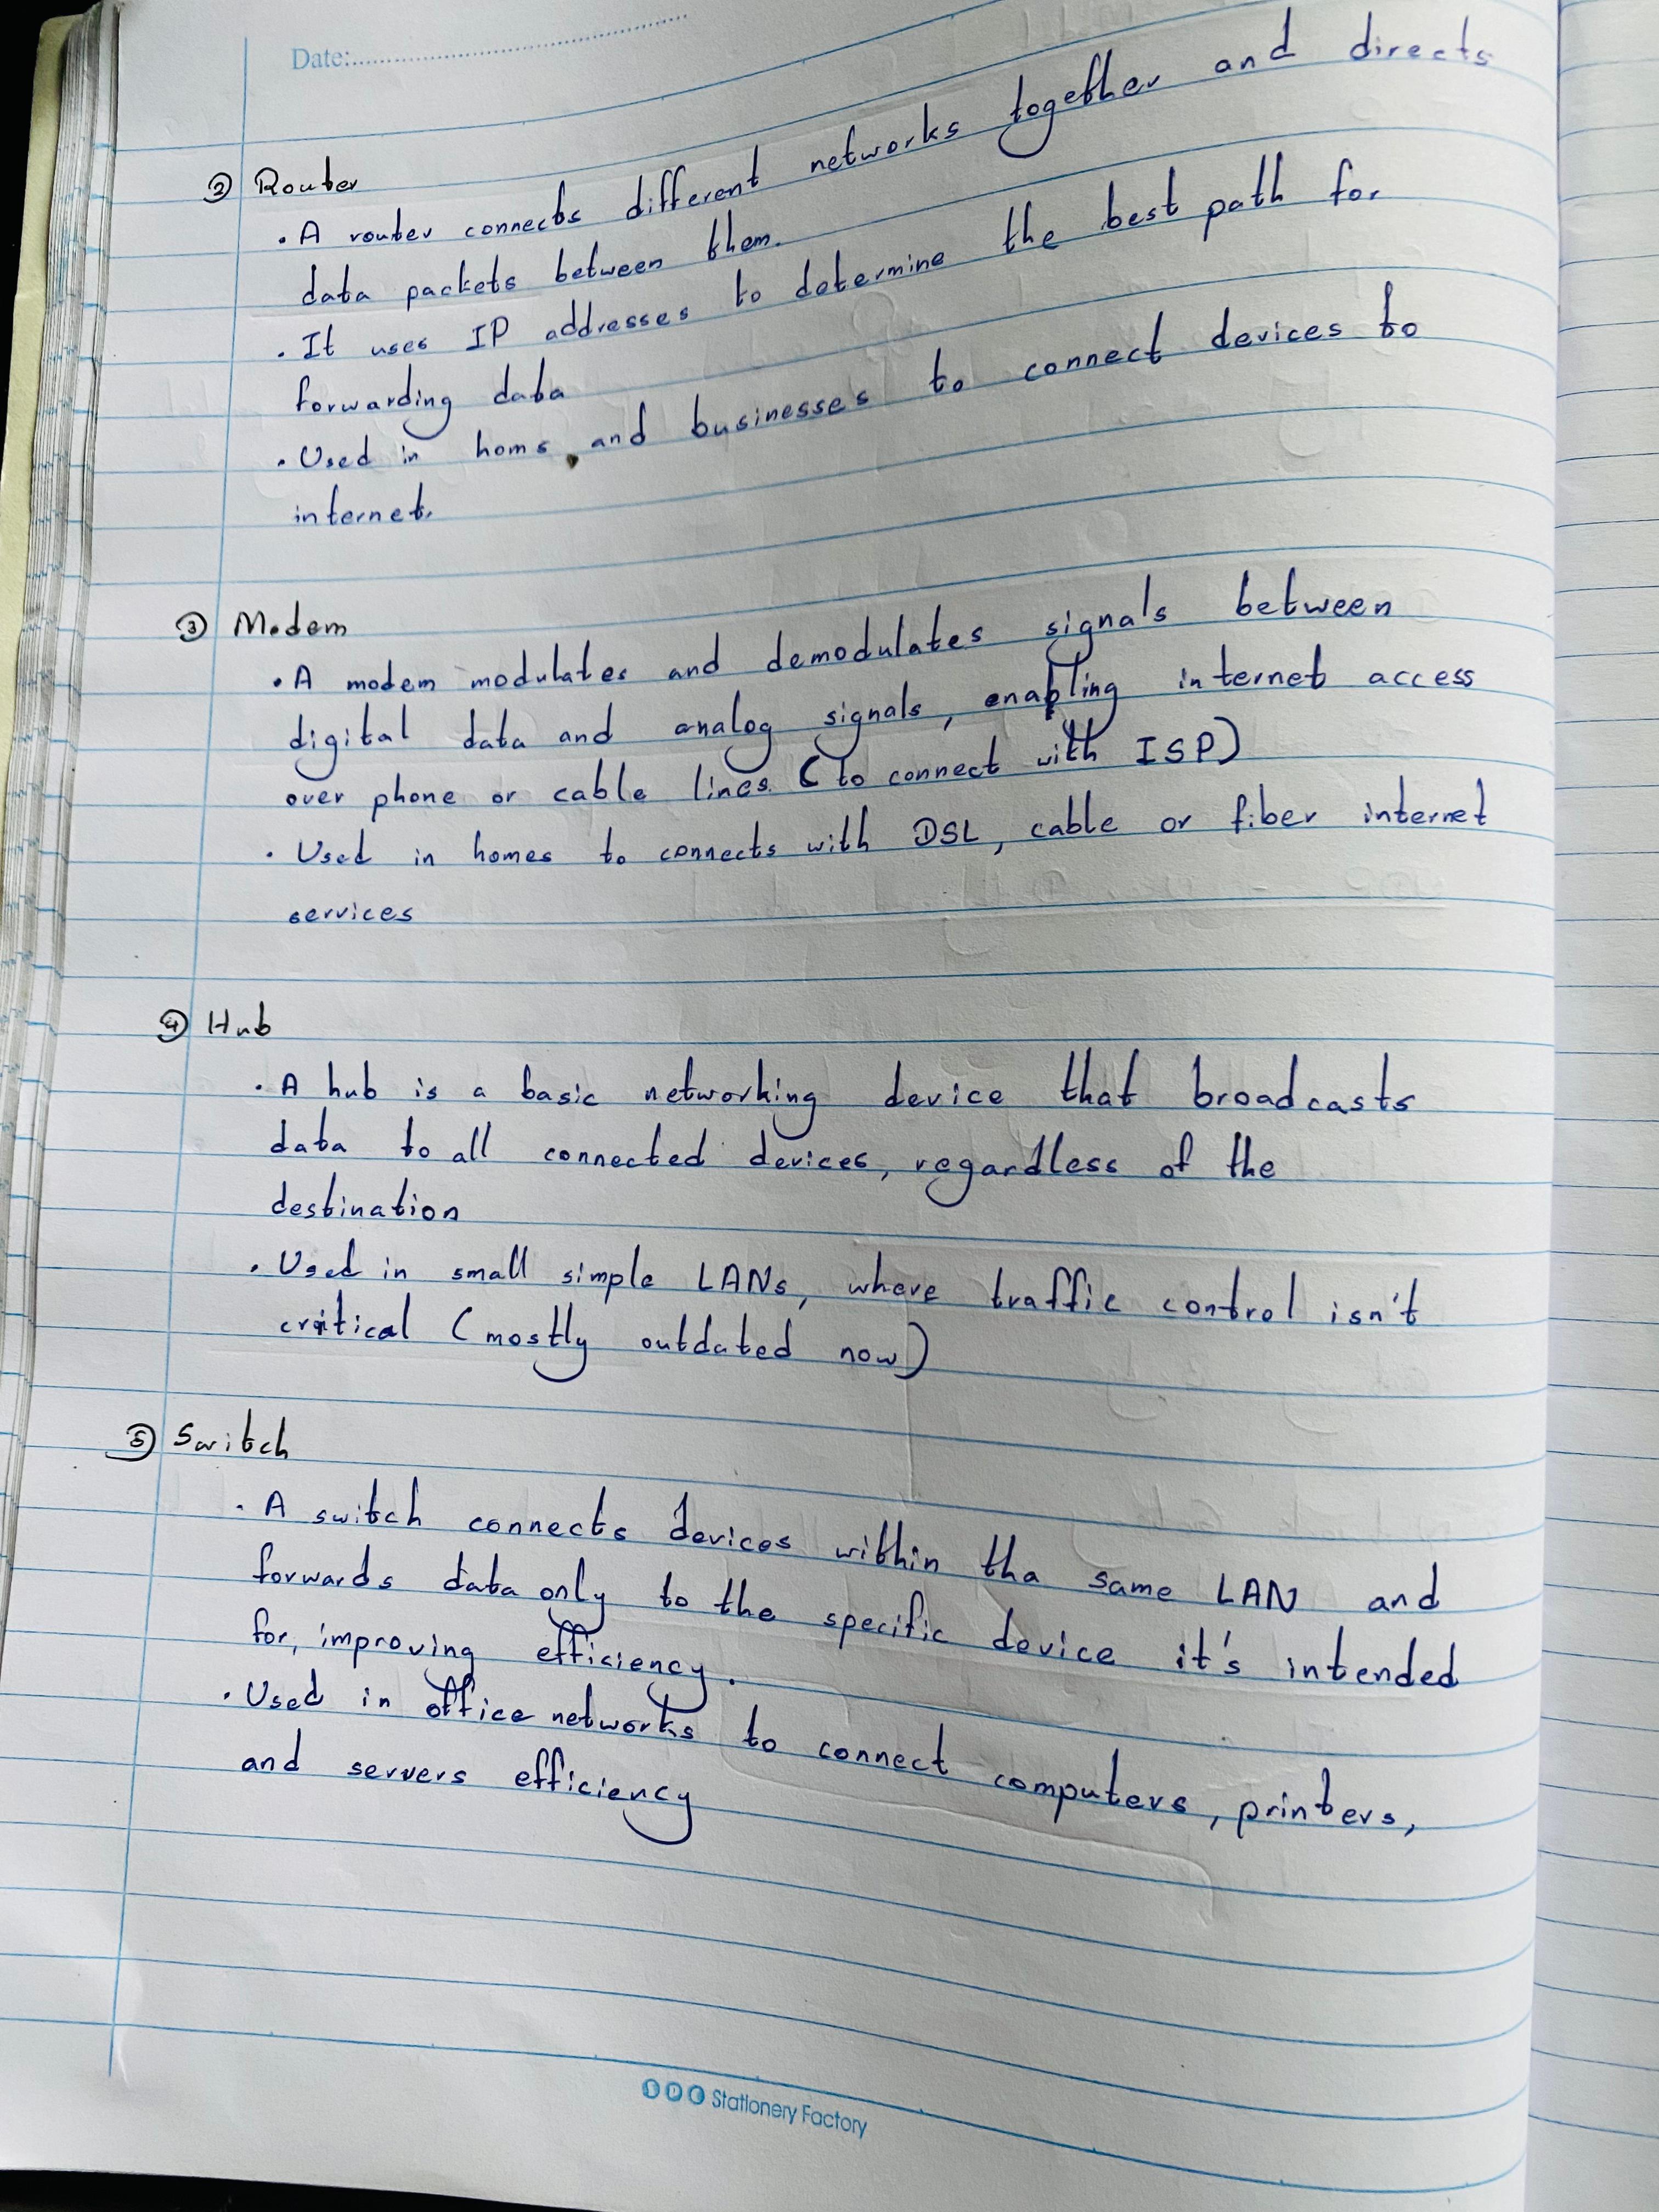 Date:
② Router
• A router connects different networks together and directs
data packets between them.
• It uses IP addresses to determine the best path for
forwarding data
• Used in homs, and businesses to connect devices to
internet.
③ Modem
• A modem modulates and demodulates signals between
digital data and analog signals, enabling internet access
over phone or cable lines. (to connect with ISP)
• Used in homes to connects with DSL, cable or fiber internet
services
④ Hub
• A hub is a basic networking device that broadcasts
data to all connected devices, regardless of the
destination
• Used in small simple LANs, where traffic control isn't
critical (mostly outdated now)
⑤ Switch
• A switch connects devices within the same LAN and
forwards data only to the specific device it's intended
for, improving efficiency.
• Used in office networks to connect computers, printers,
and servers efficiency
Stationery Factory